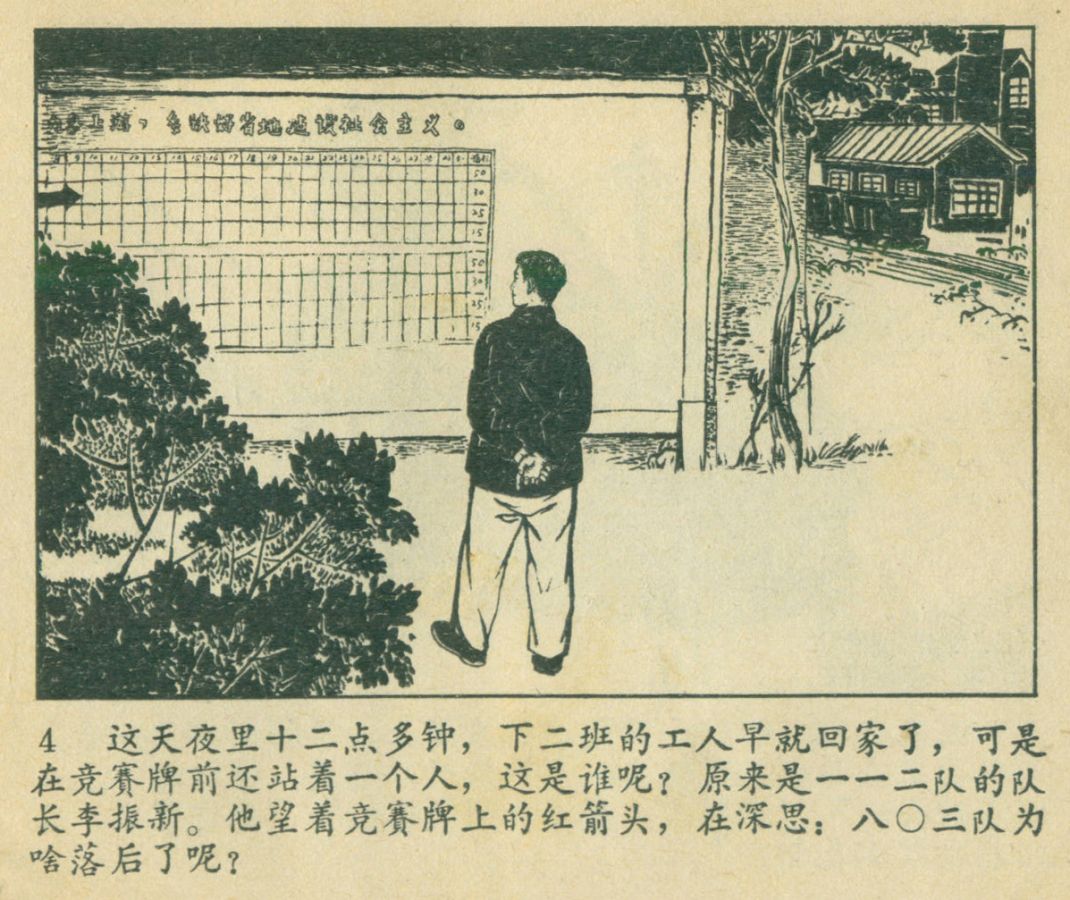 上游，多快好省地建设社会主义。
9 10 11 12 13 14 15 16 17 18 19 20 21 22 23 24 25 26 27 28
50
30
25
15
50
30
25
15
4 这天夜里十二点多钟，下二班的工人早就回家了，可是
在竞赛牌前还站着一个人，这是谁呢？原来是一一二队的队
长李振新。他望着竞赛牌上的红箭头，在深思：八〇三队为
啥落后了呢？